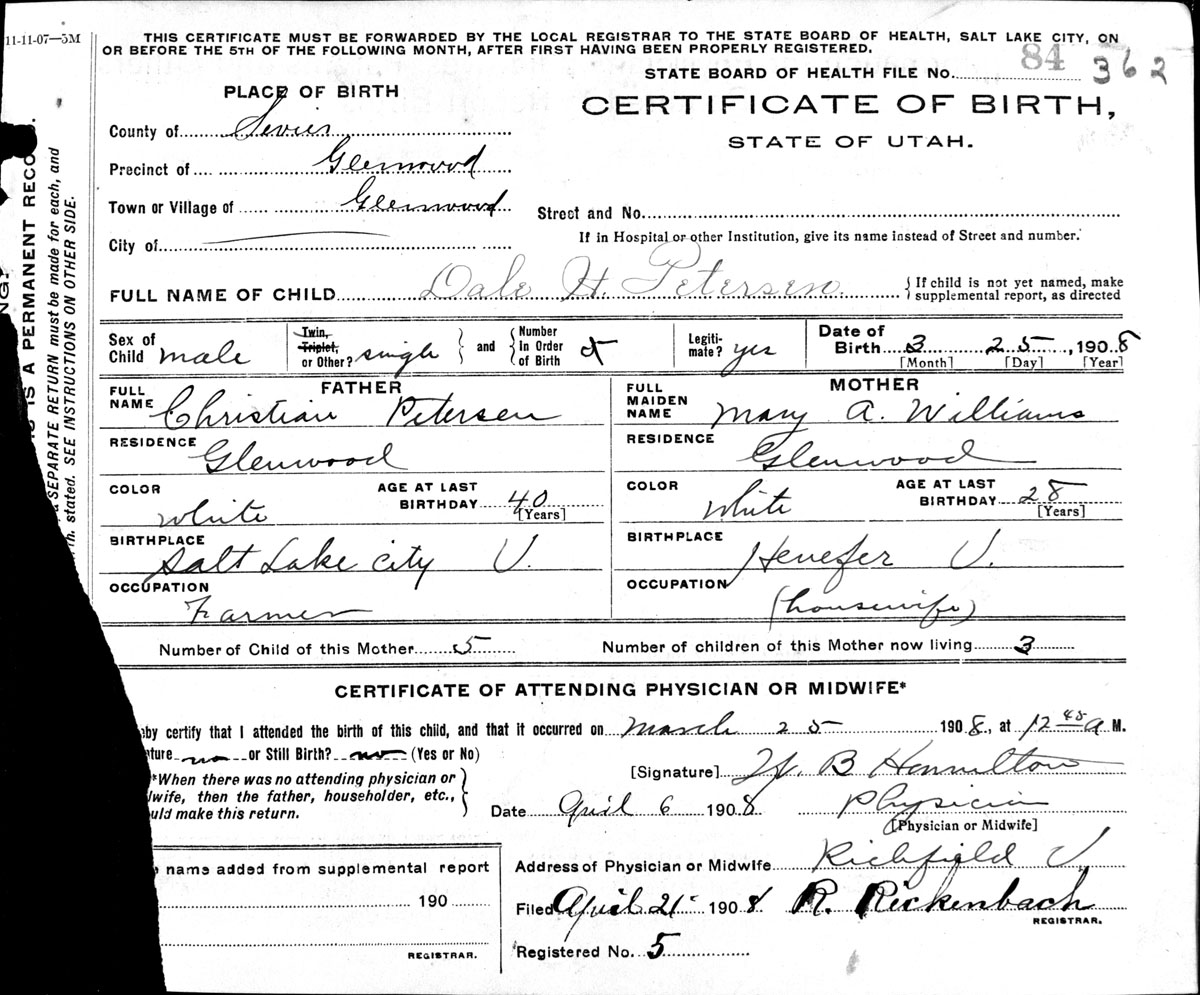 11-11-07—5M
THIS CERTIFICATE MUST BE FORWARDED BY THE LOCAL REGISTRAR TO THE STATE BOARD OF HEALTH, SALT LAKE CITY, ON
OR BEFORE THE 5TH OF THE FOLLOWING MONTH, AFTER FIRST HAVING BEEN PROPERLY REGISTERED.
STATE BOARD OF HEALTH FILE No. 84 362
PLACE OF BIRTH
CERTIFICATE OF BIRTH,
STATE OF UTAH.
County of Sevier
Precinct of Glenwood
Town or Village of Glenwood
Street and No.
City of
If in Hospital or other Institution, give its name instead of Street and number.
FULL NAME OF CHILD Dale H. Petersen
{If child is not yet named, make
supplemental report, as directed
Sex of Child male
Twin, Triplet, or Other? single
and
Number In Order of Birth
Legiti- mate? yes
Date of Birth 3 25, 1908
[Month] [Day] [Year]
FATHER
FULL NAME Christian Petersen
RESIDENCE Glenwood
COLOR white
AGE AT LAST BIRTHDAY 40
[Years]
BIRTHPLACE Salt Lake City U.
OCCUPATION Farmer
MOTHER
FULL MAIDEN NAME Mary A. Williams
RESIDENCE Glenwood
COLOR White
AGE AT LAST BIRTHDAY 28
[Years]
BIRTHPLACE Henefer U.
OCCUPATION (housewife)
Number of Child of this Mother 5
Number of children of this Mother now living 3
CERTIFICATE OF ATTENDING PHYSICIAN OR MIDWIFE*
eby certify that I attended the birth of this child, and that it occurred on March 25 1908, at 12 48 a M.
ture no or Still Birth? no (Yes or No)
*When there was no attending physician or
wife, then the father, householder, etc.,
uld make this return.
[Signature] B Hamilton
Date April 6 1908 Physician
[Physician or Midwife]
Address of Physician or Midwife Richfield U.
name added from supplemental report
190
REGISTRAR.
Filed April 21 1908 R. Rickenbach
REGISTRAR.
Registered No. 5
IS A PERMANENT RECO
SEPARATE RETURN must be made for each, and
stated. SEE INSTRUCTIONS ON OTHER SIDE.